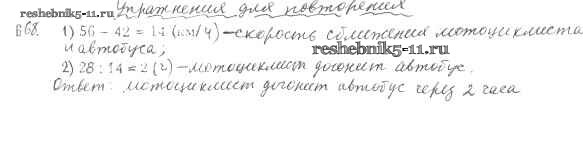 reshebnik5-11.ru
Упражнения для повторения
668. 1) 56 - 42 = 14 (км/ч) - скорость сближения мотоциклиста
и автобуса;
reshebnik5-11.ru
2) 28 : 14 = 2 (ч) - мотоциклист догонит автобус.
Ответ: мотоциклист догонит автобус через 2 часа